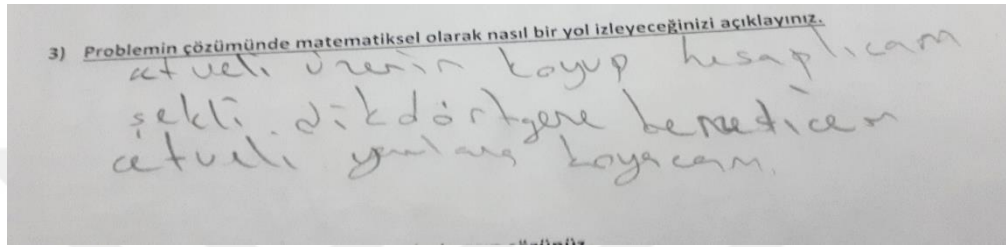 3) Problemin çözümünde matematiksel olarak nasıl bir yol izleyeceğinizi açıklayınız.
cetveli üzerin koyup hesaplıcam
şekli dikdörtgene benzeticem
cetveli koyacam.